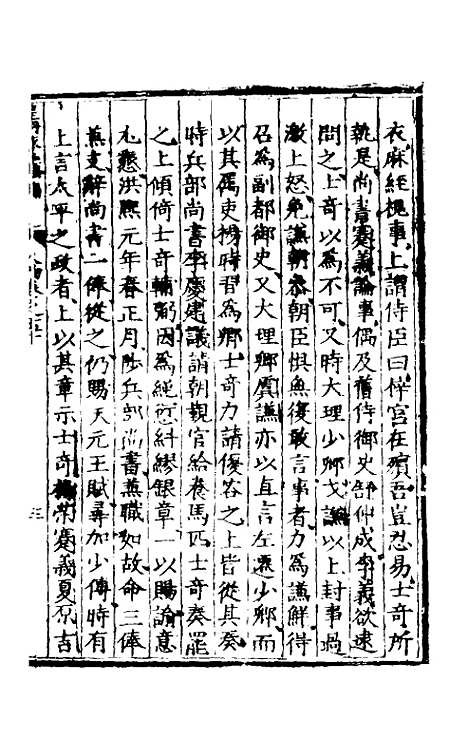 衣麻絰視事上謂侍臣曰梓宮在殯吾豈忍易士奇所
執是尚書蹇義論事偶及舊侍御史舒仲成李義欲逮
問之上奇以為不可又時大理少卿弋謙以上封事過
激上怒免謙朝參朝臣惧無復敢言事者力為謙解得
召為副都御史又大理卿虞謙亦以直言左遷少卿而
以其屬吏楊時習為卿士奇力請復容之上皆從其奏
時兵部尚書李慶建議請朝覲官給養馬匹士奇奏罷
之上傾倚士奇輔弼因為繩愆糾繆銀章一以賜諭意
尤懇洪熙元年春正月陟兵部尚書兼職如故命三俸
兼支辭尚書一俸從之仍賜天元玉賦尋加少傅時有
上言太平之政者上以其章示士奇榮蹇義夏原吉
三